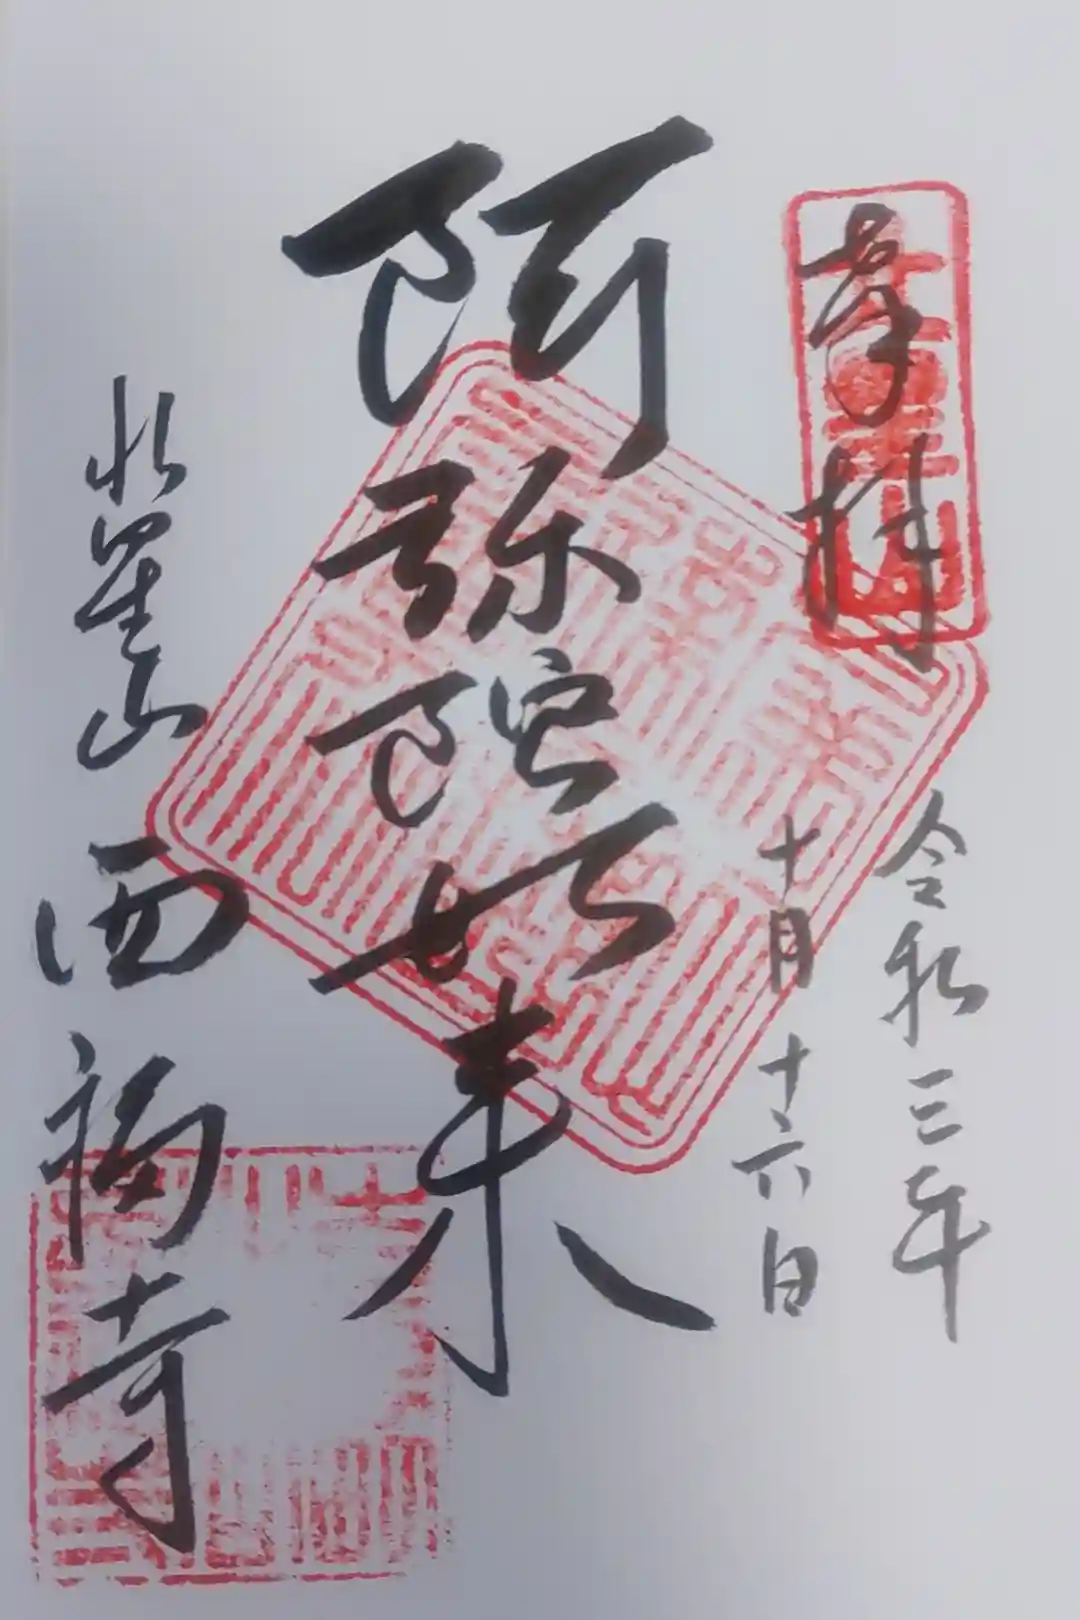 奉拝
令和三年
十月十六日
阿弥陀如来
水星山
西福寺